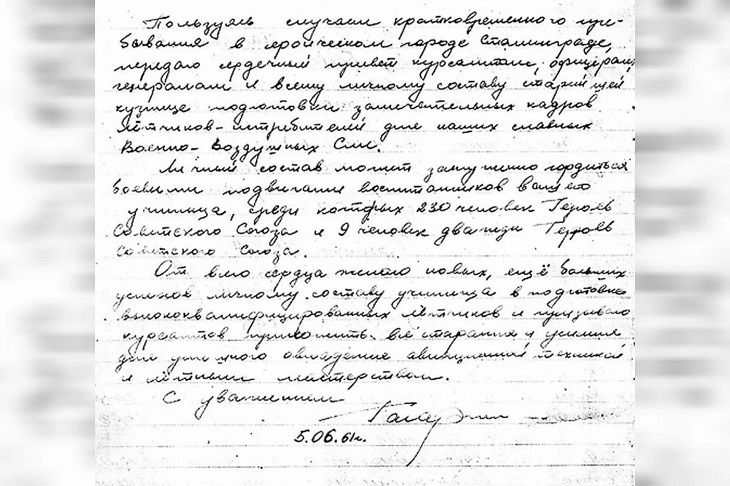 Пользуясь случаем кратковременного пре-
бывания в героическом городе Сталинграде,
передаю сердечный привет курсантам, офицерам,
генералам и всему личному составу старейшей
кузнице подготовки замечательных кадров
лётчиков-истребителей для наших славных
Военно-Воздушных Сил.
Личный состав может заслуженно гордиться
боевыми подвигами воспитанников вашего
училища, среди которых 230 человек Героев
Советского Союза и 9 человек дважды Героев
Советского Союза.
От всего сердца желаю новых, ещё больших
успехов личному составу училища в подготовке
высококвалифицированных лётчиков и призываю
курсантов приложить все старания и усилия
для успешного овладения авиационной техникой
и лётным мастерством.
С уважением
Гагарин
5.06.61г.